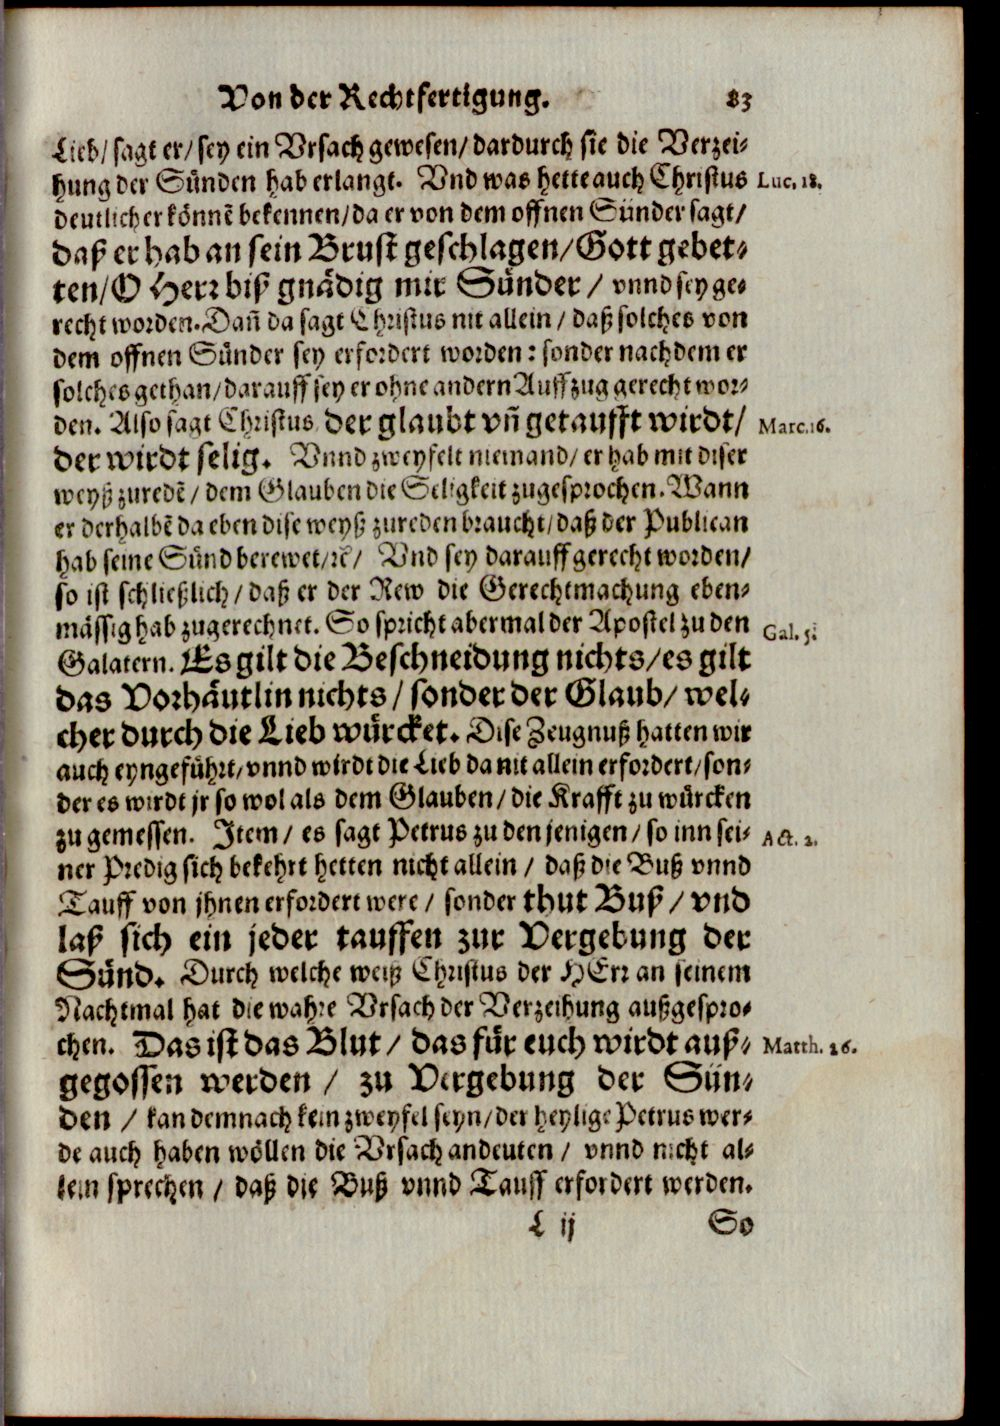 Von der Rechtfertigung. 83
Lieb/ sagt er/ sey ein Vrsach gewesen/ dardurch sie die Verzei-
hung der Sünden hab erlangt. Vnd was hette auch Christus Luc. 18.
deutlicher könnẽ bekennen/ da er von dem offnen Sünder sagt/
daß er hab an sein Brust geschlagen/ Gott gebet-
ten/ O Herr biß gnädig mir Sünder / vnnd sey ge-
recht worden. Dañ da sagt Christus nit allein / daß solches von
dem offnen Sünder sey erfordert worden: sonder nachdem er
solches gethan/ darauff sey er ohne andern Auffzug gerecht wor-
den. Also sagt Christus, der glaubt vñ getaufft wirdt/ Marc. 16.
der wirdt selig. Vnnd zweyfelt niemand/ er hab mit diser
weyß zuredẽ / dem Glauben die Seligkeit zugesprochen. Wann
er derhalbẽ da eben dise weyß zureden braucht/ daß der Publican
hab seine Sünd berewet/ ꝛc̃/ Vnd sey darauff gerecht worden/
so ist schließlich / daß er der Rew die Gerechtmachung eben-
mässig hab zugerechnet. So spricht abermal der Apostel zu den Gal. 5.
Galatern. Es gilt die Beschneidung nichts/ es gilt
das Vorhäutlin nichts / sonder der Glaub/ wel-
cher durch die Lieb würcket. Dise Zeugnuß hatten wir
auch eyngeführt/ vnnd wirdt die Lieb da nit allein erfordert/ son-
der es wirdt jr so wol als dem Glauben / die Krafft zu würcken
zu gemessen. Item / es sagt Petrus zu den jenigen / so inn sei- Act. 2.
ner Predig sich bekehrt hetten nicht allein / daß die Buß vnnd
Tauff von jhnen erfordert were / sonder thut Buß / vnd
laß sich ein jeder tauffen zur Vergebung der
Sünd. Durch welche weiß Christus der HErr an seinem
Nachtmal hat die wahre Vrsach der Verzeihung außgespro-
chen. Das ist das Blut / das für euch wirdt auß- Matth. 26.
gegossen werden / zu Vergebung der Sün-
den / kan demnach kein zweyfel seyn/ der heylige Petrus wer-
de auch haben wöllen die Vrsach andeuten / vnnd nicht al-
lein sprechen / daß die Buß vnnd Tauff erfordert werden.
L ij So